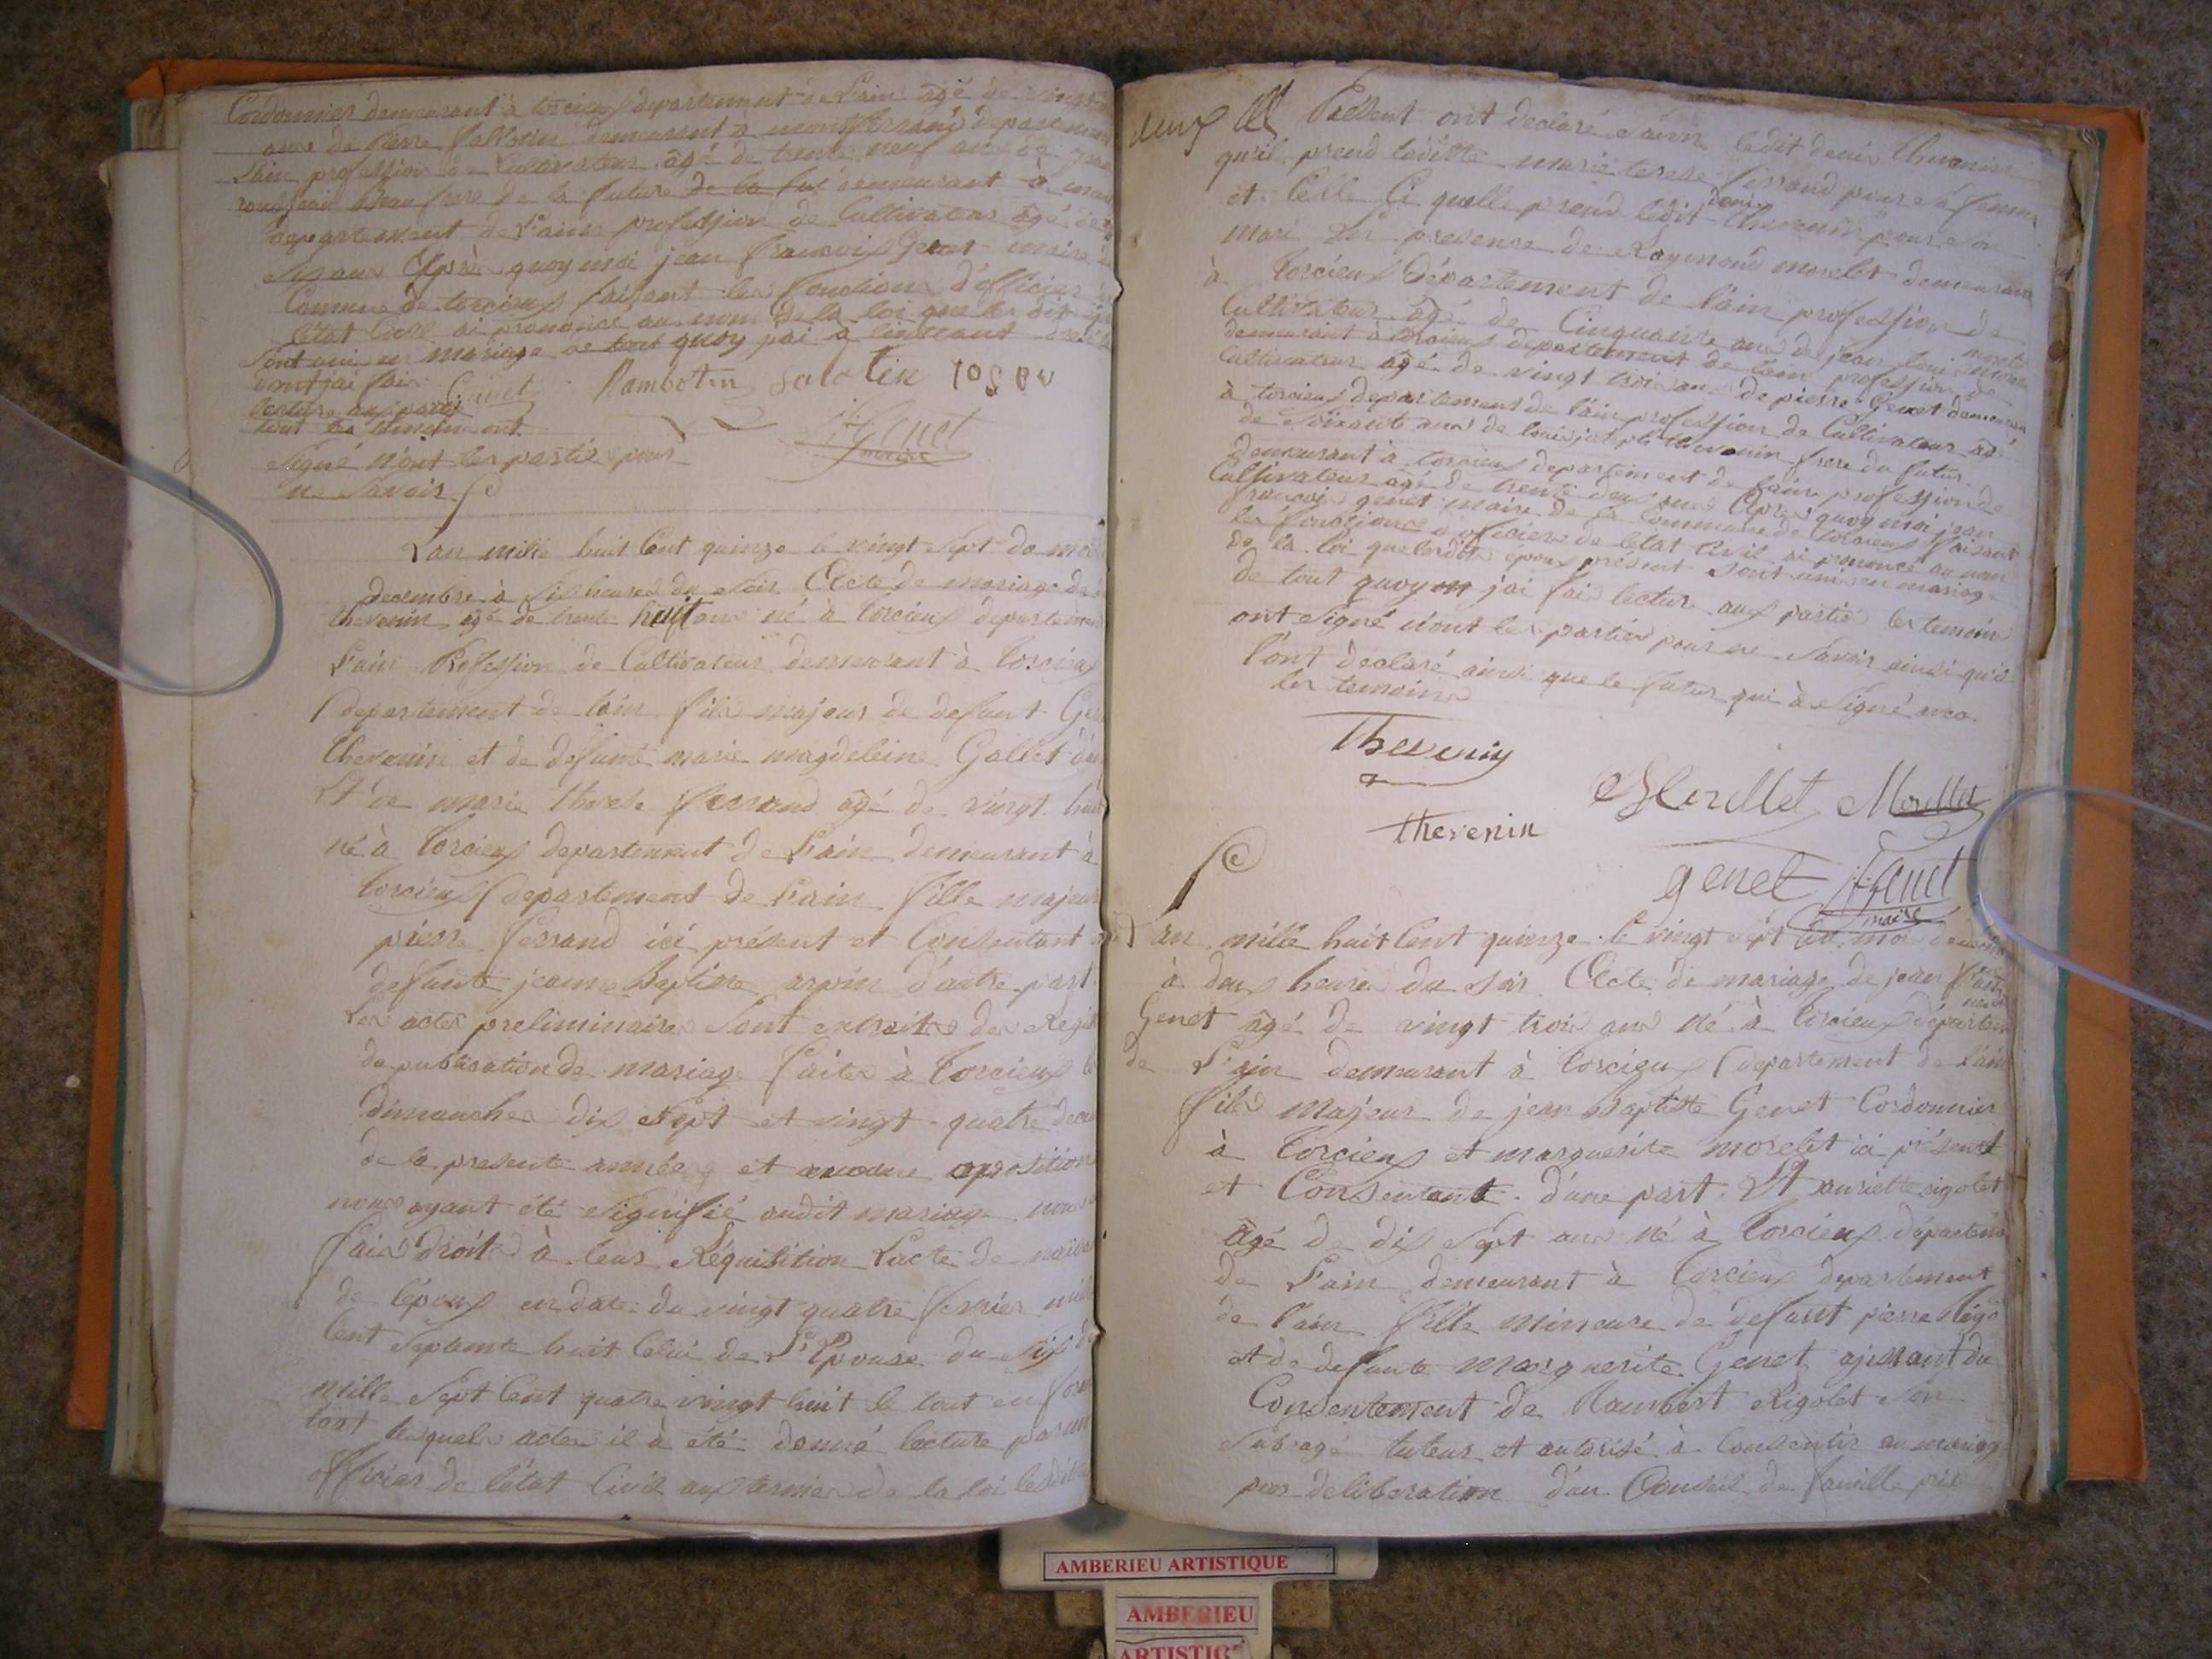 Cordonnier demeurant à torcieux departement de Lain âgé de vingt
ans de Pierre Sallotin demeurant à montferrand departement
Lain profession de Cultivateur âgé de trente neuf ans de
rousseau Beau frere de la future de la fut demeurant à
departement de L'ain profession de Cultivateur âgé de
six ans Après quoy moi jean francois Genet maire
Comune de torcieux faisant les fonctions d'officier
létat Civil ai prononcé au nom de la loi que les dits
sont unis en mariage de tout quoy jai à linstant
dont jai fait
lecture aux parti
tout les temoins ont
signé n'ont les partis pour
ne savoir
Rambotin salotin
JF Genet
maire
Lan mille huit Cent quinze le vingt sept du mois
Decembre à six heures du soir Acte de mariage de
thevenin âgé de trente huit ans né à torcieux departement
Lain Profession de Cultivateur demeurant à torcieux
departement de lain fils majeur de defunt
thevenin et de defunte marie magdeleine Gallet
Et de marie therese ferrand âgé de vingt huit
né à torcieux departement de Lain demeurant à
torcieux departement de Lain fille majeur
pierre ferrand ici présent et Consentant
defunte jeanne Baptiste arpin d'autre part
Les actes preliminaires sont extraits des Regist
de publication de mariage faites à torcieux
dimanches dix sept et vingt quatre
de la presente année et aucune oposition
nous ayant été signifié audit mariage nous
fais droits à leur Réquisition Lacte de
de lépoux en date du vingt quatre fevrier
Cent septente huit Celui de L'Epouse du six
mille sept Cent quatre vingt huit le tout en
tout lesquels actes il à été donné lecture par
officier de létat Civil aux termes de la loi
Present ont declaré savoir ledit denis thevenin
qu'il prend laditte marie terese ferrand pour sa femme
et Celle Ci quelle prend ledit denis thevenin pour son
mari En presence de Raymond morelet demeurant
à torcieux département de lain profession de
Cultivateur âgé de Cinquante ans de jean loui
demeurant à torcieux departement de lain profession de
Cultivateur âgé de vingt trois ans de pierre Genet demeurant
à torcieux departement de lain profession de Cultivateur âgé
de soixante ans de louis joseph thevenin frere du futur
demeurant à torcieux departement de lain profession de
Cultivateur âgé de trente deux ans Après quoy moi jean
francois genet maire de la Commune de torcieux faisant
les fonctions d'officier de létat Civil ai prononcé au nom
de la loi que lesdits époux présent sont unis en mariage
de tout quoy jai fais lecture aux partis les temoins
ont signé n'ont les parties pour ne savoir ainsi qu'il
l'ont déclaré ainsi que le futur qui à signé avec
les temoins
Thevenin
Morellet Morellet
thevenin
genet JF Genet
maire
L'an mille huit Cent quinze le vingt sept du mois decembre
à deux heures du soir Acte de mariage de jean
Genet âgé de vingt trois ans né à torcieux départem
de L'ain demeurant à torcieux departement de lain
fils majeur de jean Baptiste Genet Cordonnier
à torcieux et marguerite morelet ici présent
et Consentant d'une part Et rigolet
âgé de dix sept ans né à torcieux départem
de Lain demeurant à torcieux departement
de lain fille mineure de defunt pierre Rigo
et de defunte marguerite Genet ajissant du
Consentement de Rambert Rigolet son
subrogé tuteur et autorisé à Consentir au mariage
par deliberation d'un Conseil de famille
AMBERIEU ARTISTIQUE
AMBERIEU
ARTISTIQ